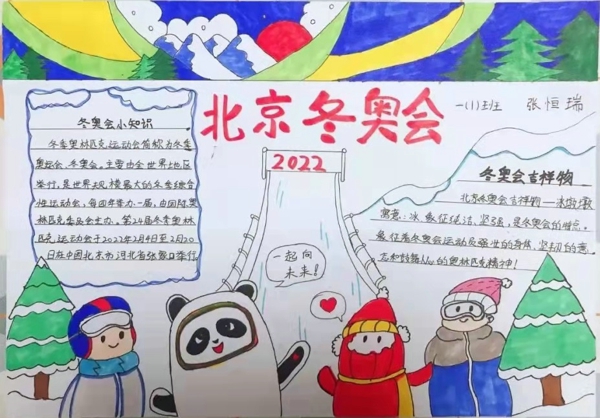 北京冬奥会
一(1)班 张恒瑞
2022
冬奥会小知识
冬季奥林匹克运动会简称为冬季
奥运会、冬奥会。主要由全世界地区
举行,是世界规模最大的冬季综合
性运动会,每四年举办一届,由国际奥
林匹克委员会主办。第24届冬季奥林
匹克运动会于2022年2月4日至2月20
日在中国北京市河北省张家口举行
一起向
未来!
冬奥会吉祥物
北京冬奥会吉祥物—冰墩墩
寓意:冰象征纯洁、坚强,是冬奥会的特点。
象征着冬奥会运动员强壮的身体,坚韧的意
志和鼓舞人心的奥林匹克精神!